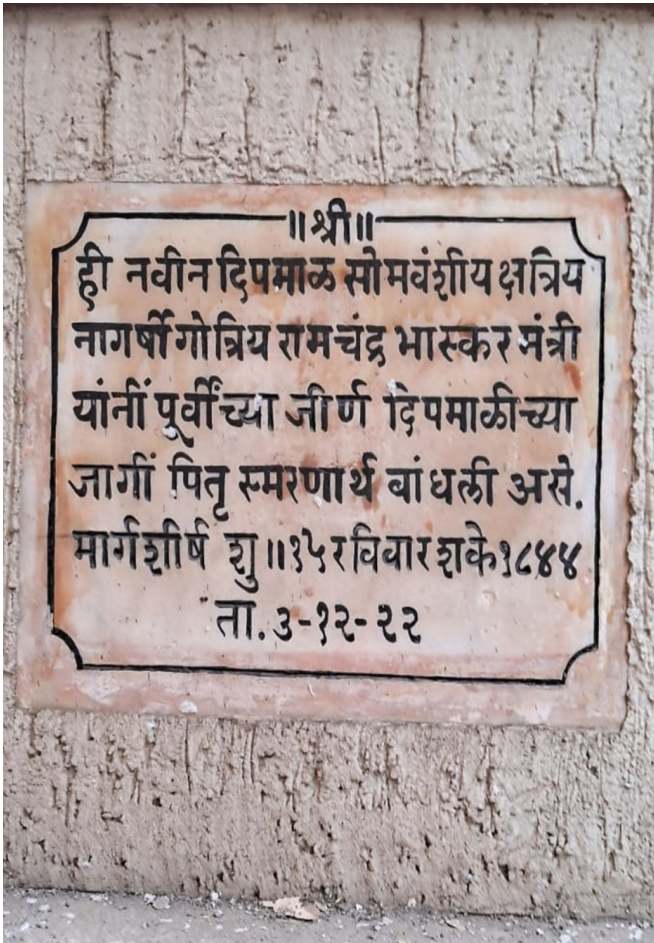 ॥श्री॥
ही नवीन दिपमाळ सोमवंशीय क्षत्रिय
नागर्षी गोत्रिय रामचंद्र भास्कर मंत्री
यांनीं पूर्वींच्या जीर्ण दिपमाळीच्या
जागीं पितृ स्मरणार्थ बांधली असे.
मार्गशीर्ष शु॥१५ रविवार शके १८४४
ता. ३-१२-२२